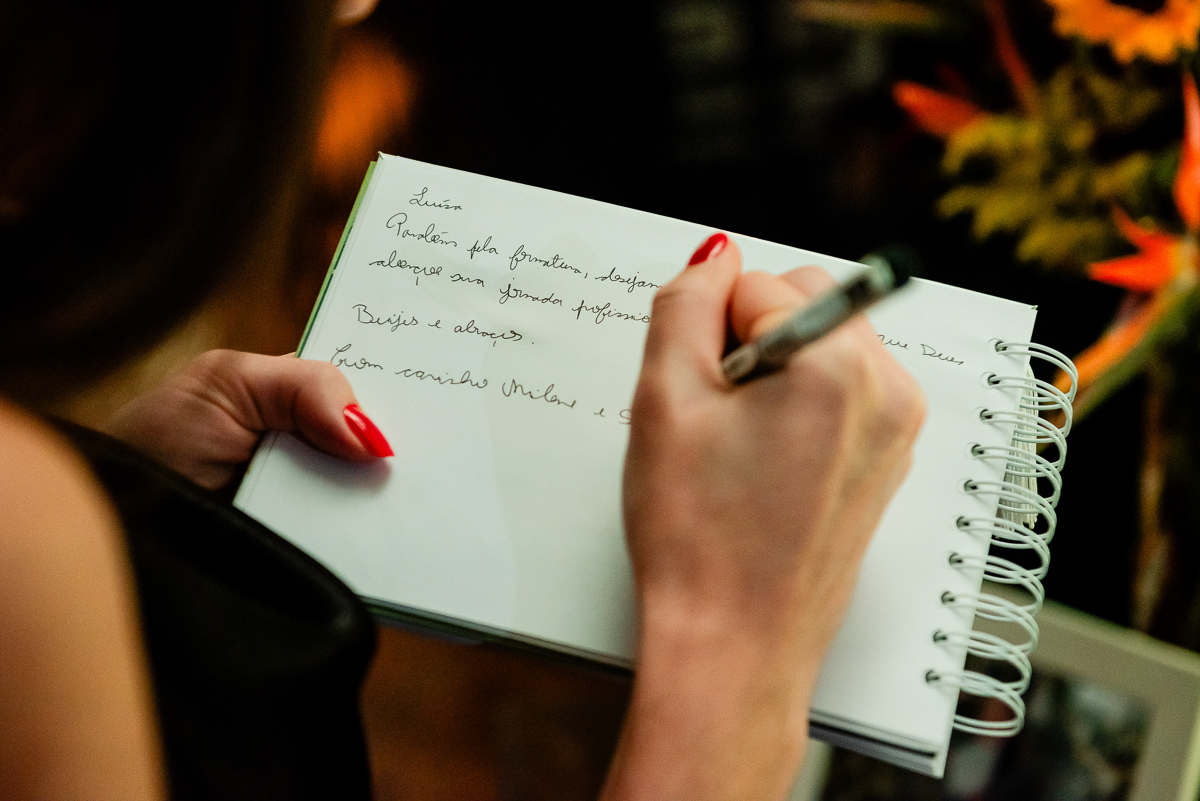 Luísa
Parabéns pela formatura, desejam que Deus
abençoe sua jornada profissio
Beijos e abraços.
Com carinho Milene e S